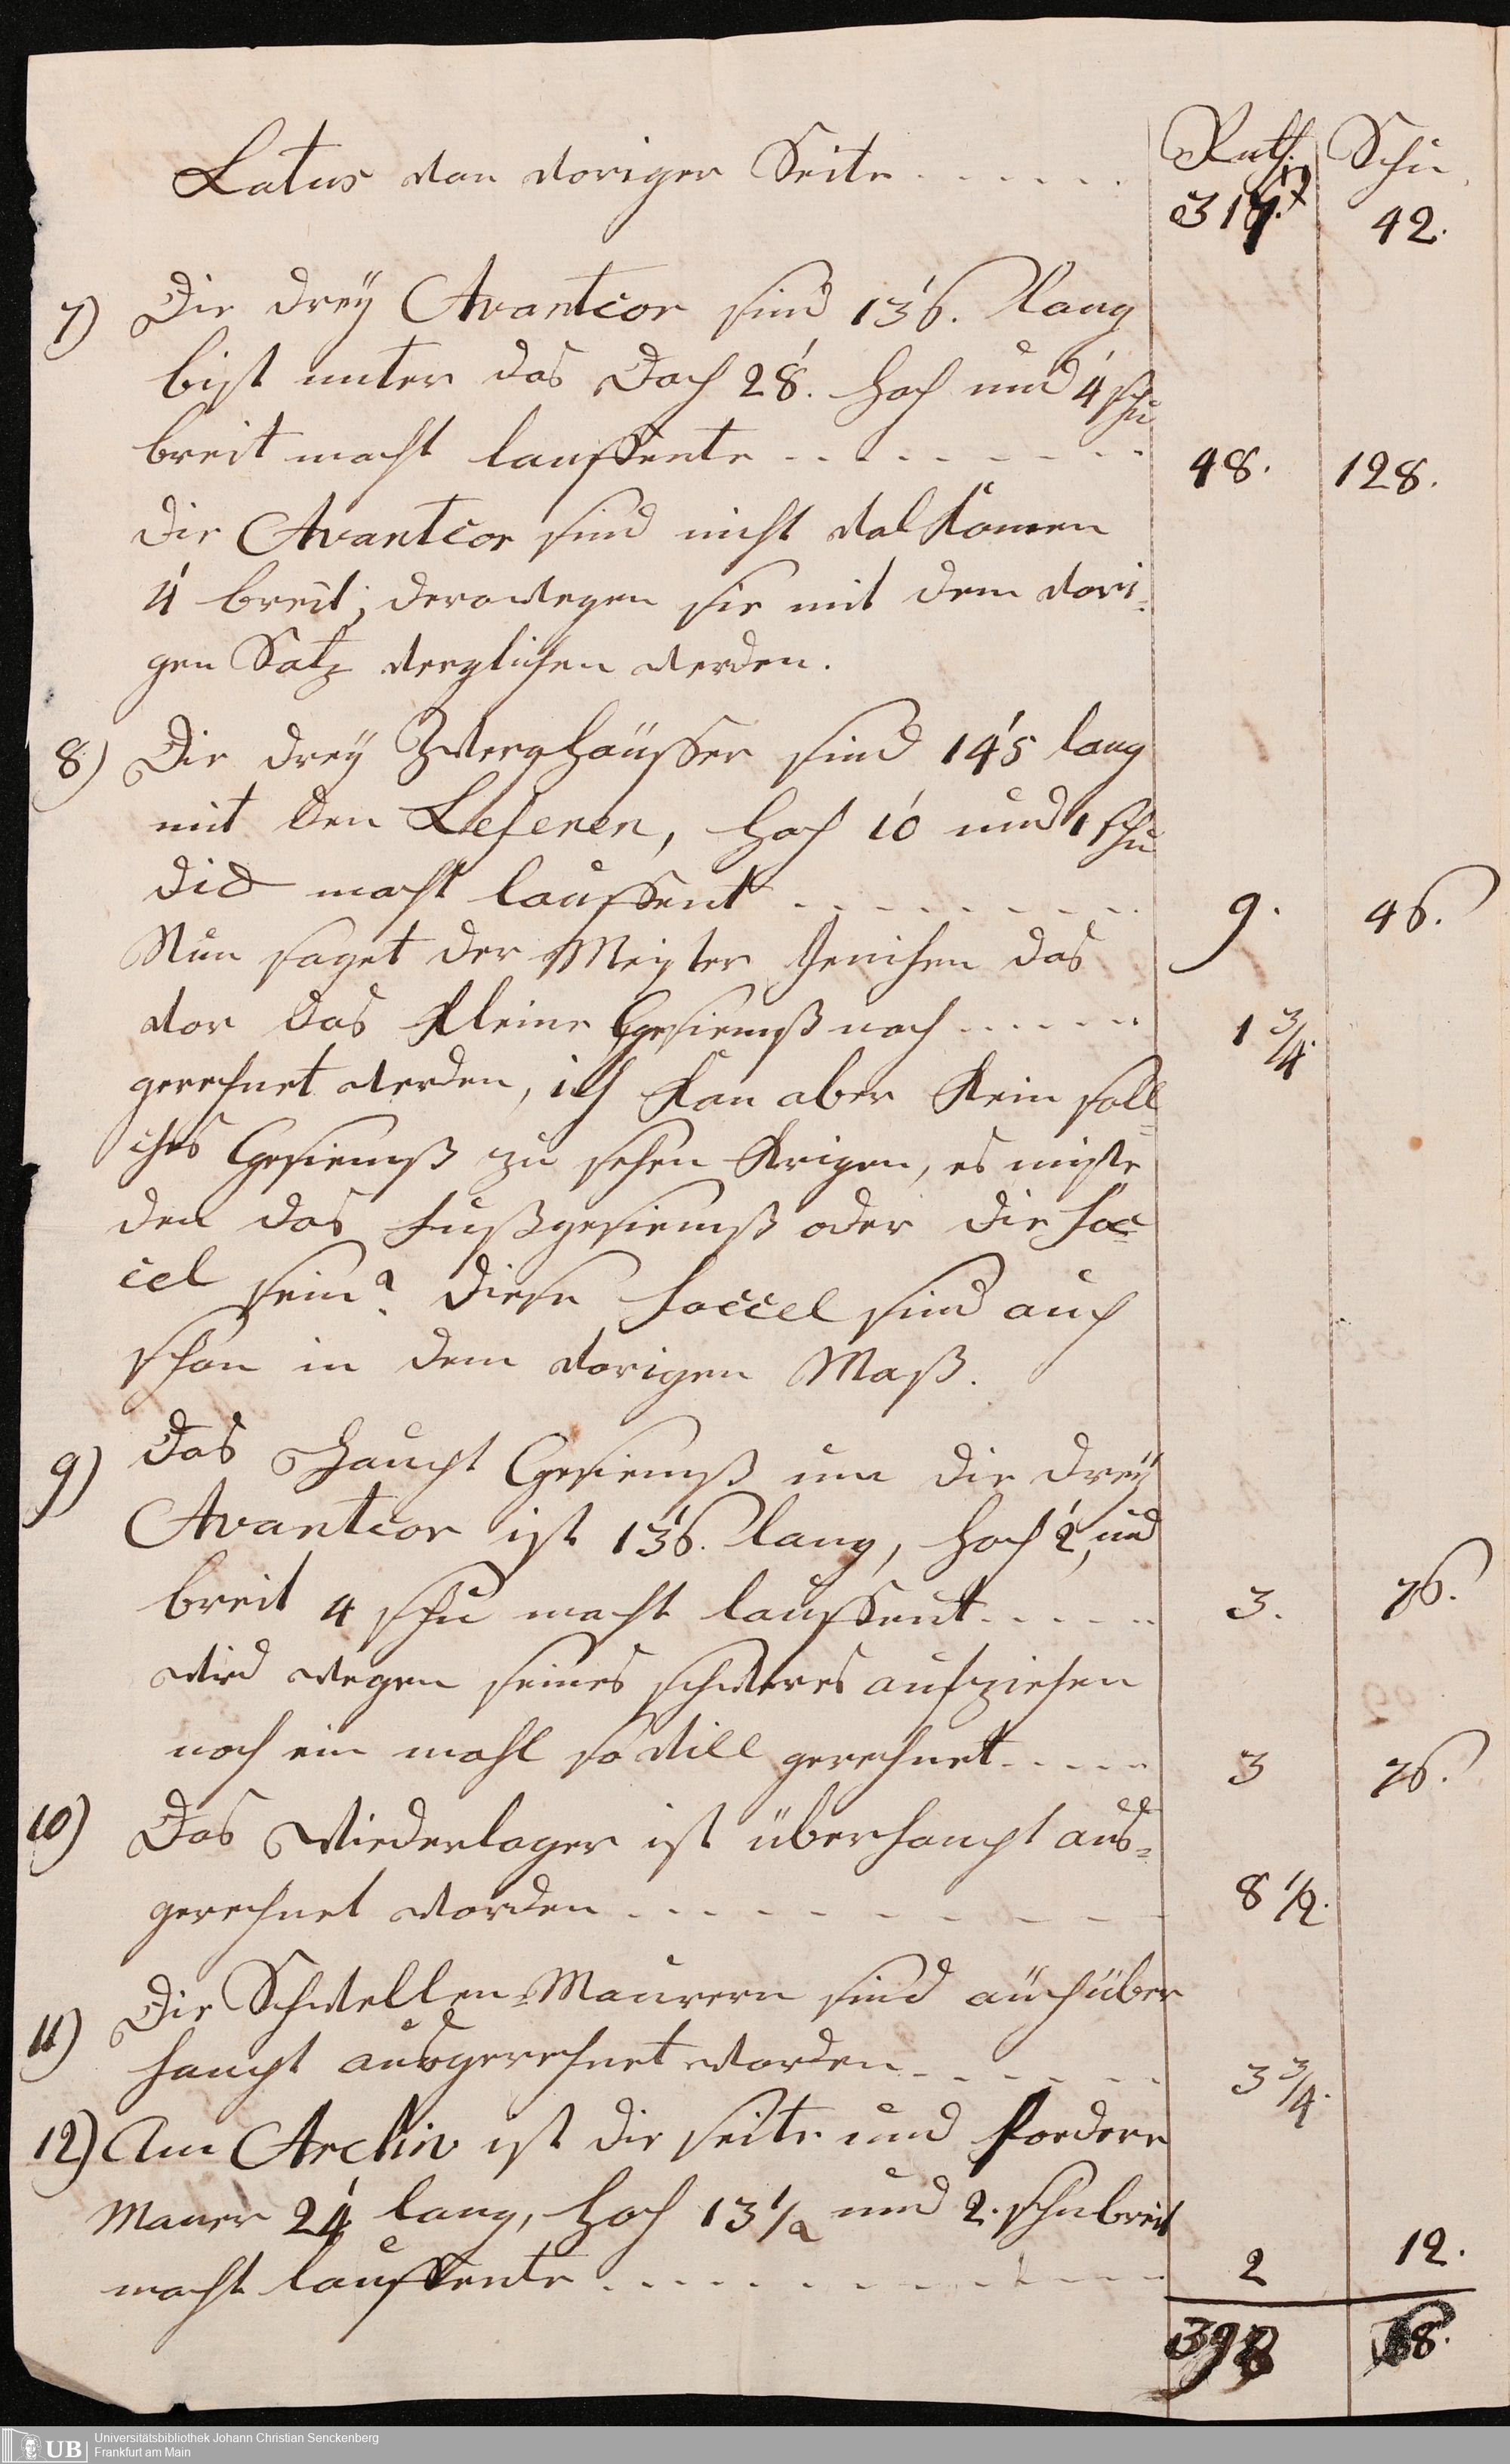 Latus von voriger Seite . . . . . .
Ruth. Schu
317. 42.
7) Die dreÿ Avantcor sind 136. lang
bist unter das Dach 28'. hoch und 4' schu
breit macht lauffente . . . . . . . . . 48. 128.
die Avantcor sind nicht volkomen
4' breit; derowegen sie mit dem vori-
gen Satz verglichen werden.
8) Die dreÿ Zwerghäusser sind 145 lang
mit den Lesenen, hoch 10' und 1 schu
dick macht lauffent . . . . . . . . . 9. 46.
Nun saget der Meister Jenichen das
vor das kleine Gesiemß noch . . . . . . 1 3/4.
gerechnet werden, ich kan aber kein soll-
ches Gesiemß zu sehen krigen, es miste
den das Fußgesiemß oder die Soc-
cel sein? diese Soccel sind auch
schon in dem vorigen Maß.
9) Das Haupt Gesiemß um die dreÿ
Avantcor ist 136. lang, hoch 2', und
breit 4 schu macht lauffent . . . . . . 3. 76.
wird wegen seines schweres aufziehen
noch ein mahl so vill gerechnet . . . . . 3 76.
10) Das Wiederlager ist überhaupt aus-
gerechnet worden . . . . . . . . . . 8 1/2.
11) Die Schwellen-Maurern sind auch über
haupt ausgerechnet worden . . . . . . 3 3/4.
12) Am Archiv ist die seite und fordere
Mauer 24' lang, hoch 13 1/2 und 2. schu breit
macht lauffente . . . . . . . . . . . 2 12.
398 68.
UB Universitätsbibliothek Johann Christian Senckenberg
Frankfurt am Main